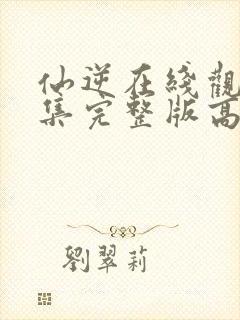 仙逆在綫觀
集完整版高
劉翠莉